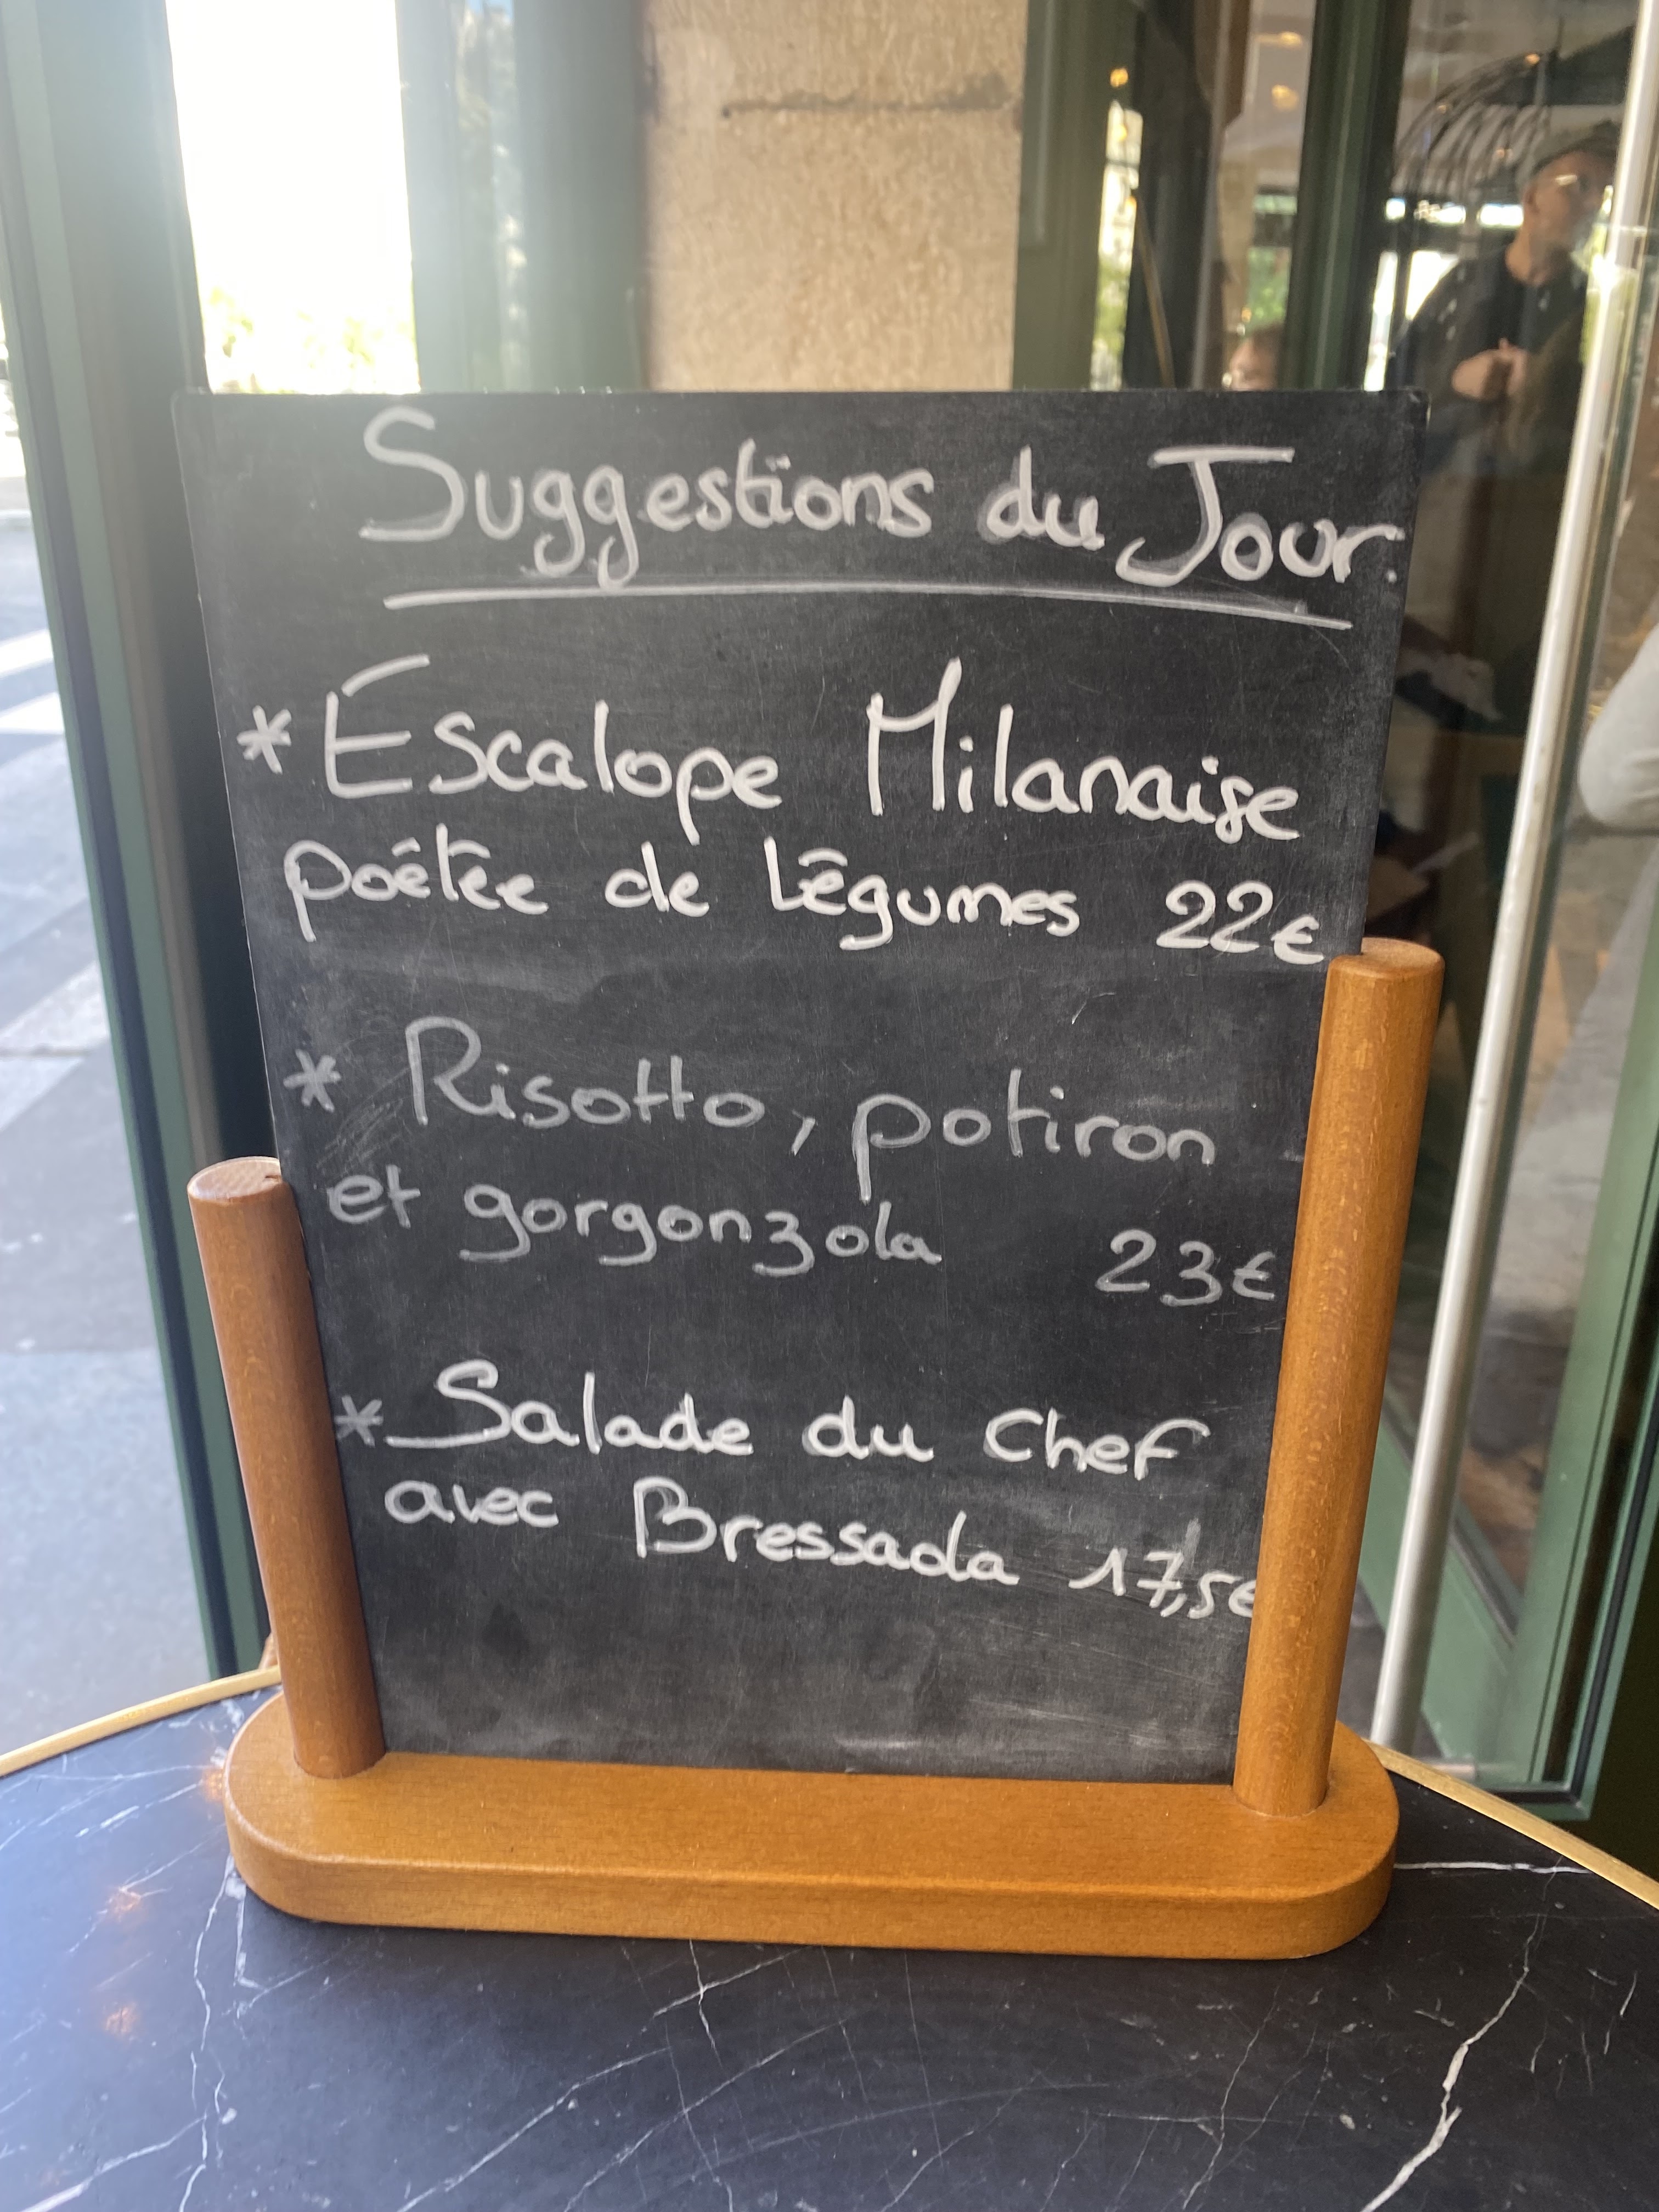 Suggestions du Jour.
* Escalope Milanaise
poêlée de légumes 22€
* Risotto, potiron
et gorgonzola 23€
* Salade du Chef
avec Bressaola 17,5€